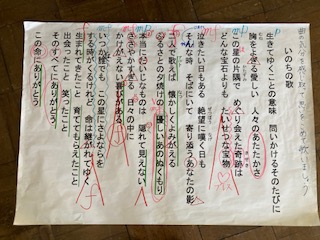 曲の気分を感じ取って思いをこめて歌いましょう
いのちの歌
生きてゆくことの意味　問いかけるそのたびに
胸をよぎる愛しい　人々のあたたかさ
この星の片隅で　めぐり会えた奇跡は
どんな宝石よりも　たいせつな宝物
泣きたい日もある　絶望に嘆く日も
そんな時　そばにいて　寄り添うあなたの影
二人で歌えば　懐かしくよみがえる
ふるさとの夕焼けの　優しいあのぬくもり
本当にだいじなものは　隠れて見えない
ささやかすぎる　日々の中に
かけがえない喜びがある
いつかは誰でも　この星にさよならを
する時が来るけれど　命は継がれてゆく
生まれてきたこと　育ててもらえたこと
出会ったこと　笑ったこと
そのすべてにありがとう
この命にありがとう